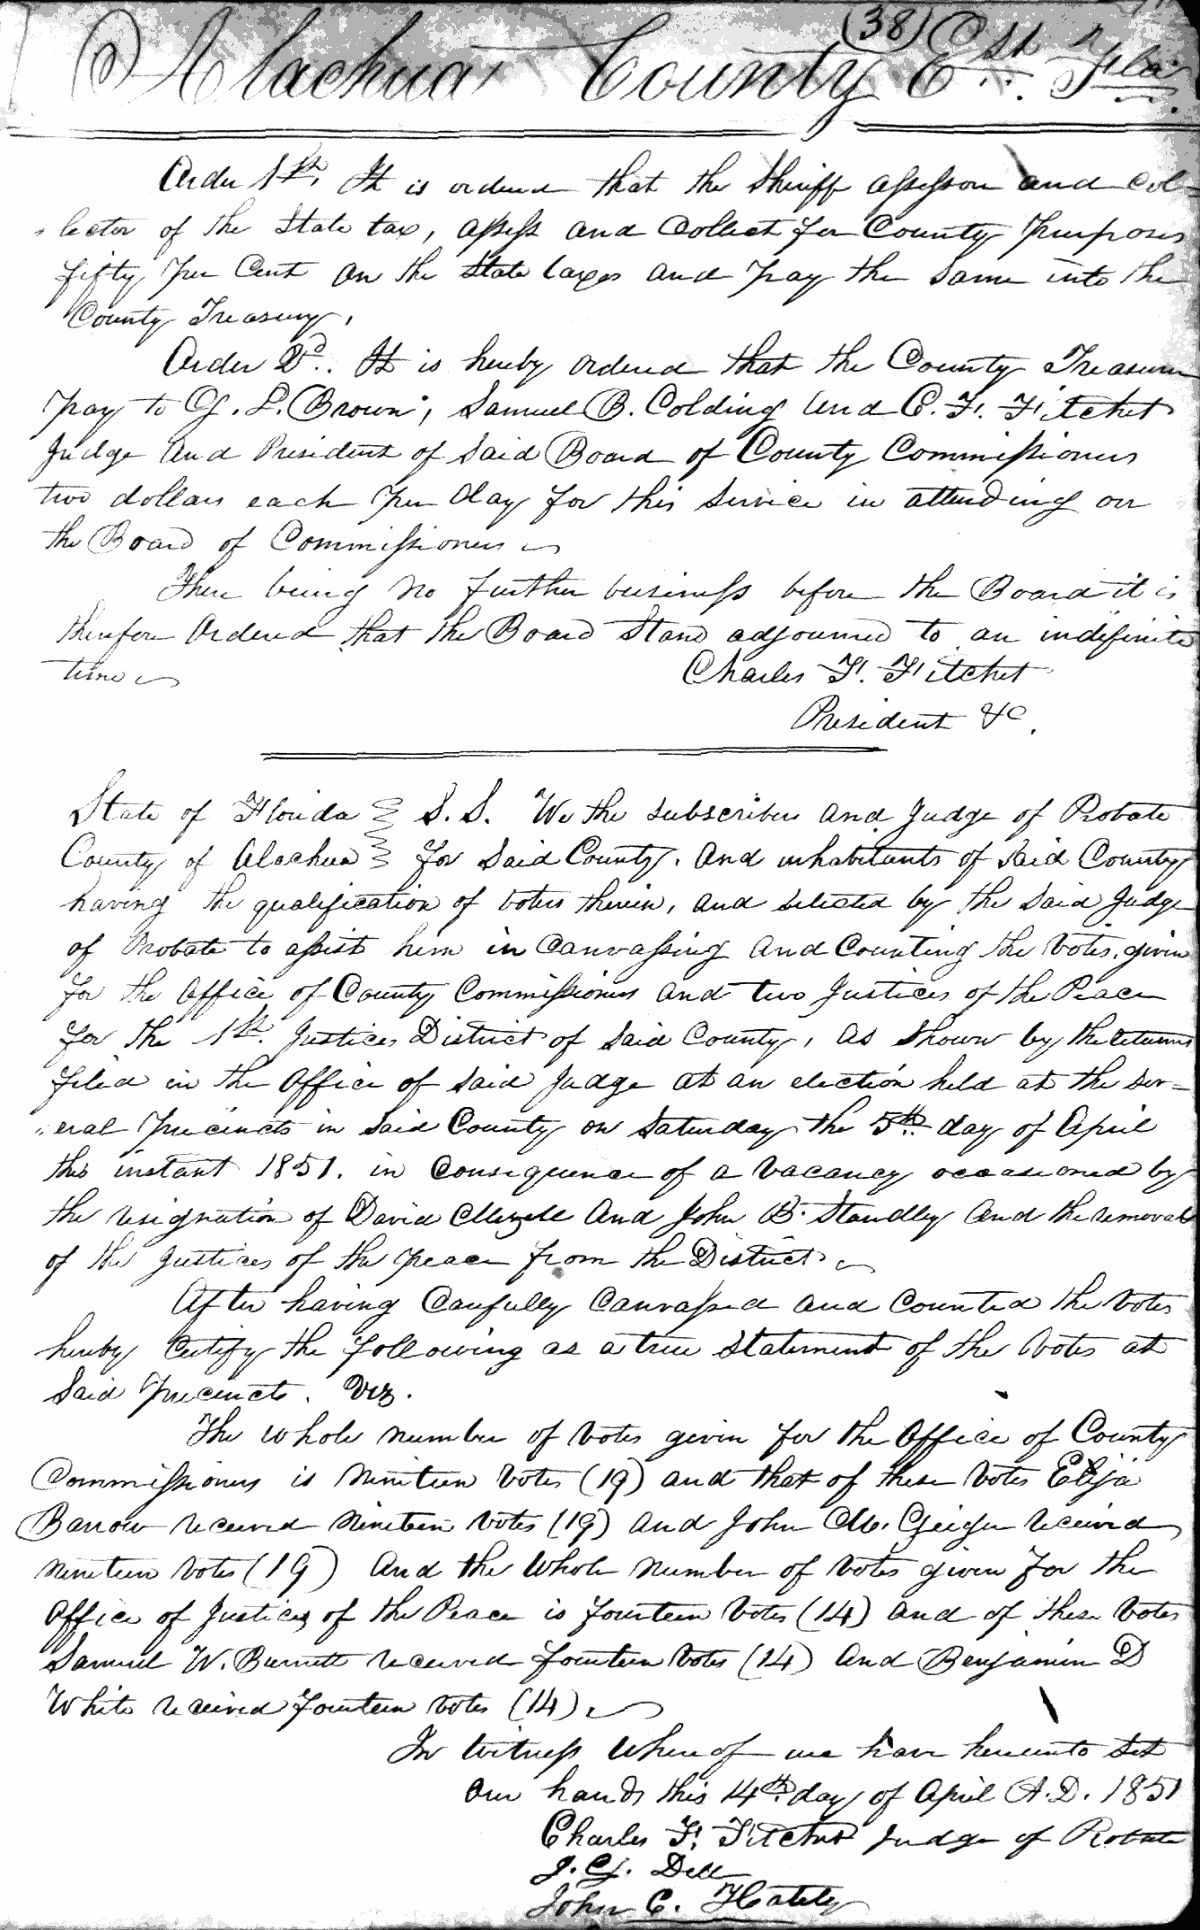 (38)
Alachua County Est. Flba.
Order 1st. It is ordered that the Sheriff assessor and col-
lector of the State tax, assess and Collect for County purposes
fifty per Cent on the State taxes and pay the same into the
County Treasury,
Order 2d.. It is hereby ordered that the County Treasurer
pay to G. L. Brown, Samuel B. Colding and C. F. Fitchet
Judge and President of said Board of County Commissioners
two dollars each per day for this service in attending on
the Board of Commissioners
There being no further business before the Board it is
therefore Ordered that the Board Stand adjourned to an indefinite
time
Charles F. Fitchet
President &C.
State of Florida S. S. We the subscribers and Judge of Probate
County of Alachua for said County, and inhabitants of said County
having the qualification of voters therein, and selected by the said Judge
of Probate to assist him in Canvassing and Counting the votes given
for the Office of County Commissioners and two Justices of the Peace
for the 1st. Justices District of said County, as shown by the returns
filed in the Office of said Judge at an election held at the sev-
eral precincts in said County on Saturday the 5th day of April
this instant 1851. in consequence of a vacancy occasioned by
the resignation of David Mizell and John B. Standley and the removal
of the Justices of the peace from the District
After having Carefully Canvassed and Counted the votes
hereby certify the following as a true statement of the votes at
said precincts. Viz.
The whole number of votes given for the Office of County
Commissioners is nineteen votes (19) and that of these votes Elija
Barrow received nineteen votes (19) and John M. Geiger received
nineteen votes (19) and the whole number of votes given for the
Office of Justices of the Peace is fourteen votes (14) and of these votes
Samuel W. Burnett received fourteen votes (14) and Benjamin D
White received fourteen votes (14).
In witness whereof we have hereunto set
our hands this 14th day of April A.D. 1851
Charles F. Fitchet Judge of Probate
J. G. Dell
John C. Hately